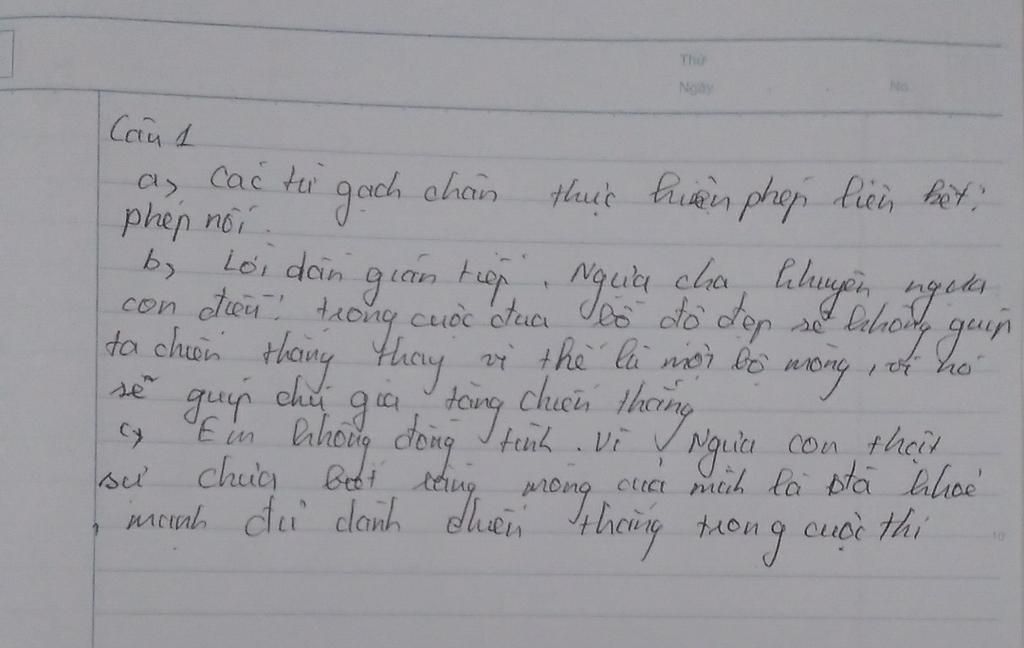 Thứ
Ngày No
Câu 1
a, Các từ gạch chân thực hiện phép liên kết:
phép nối.
b, Lời dẫn gián tiếp. Ngựa cha khuyên ngựa
con điều: trong cuộc đua bộ đồ đẹp sẽ không giúp
ta chiến thắng thay vì thế là mới bộ móng, vì nó
sẽ giúp chú gia tăng chiến thắng
c, Em không đồng tình. Vì Ngựa con thật
sự chưa biết rằng móng của mình là đã khoẻ
mạnh đủ dành chiến thắng trong cuộc thi
10